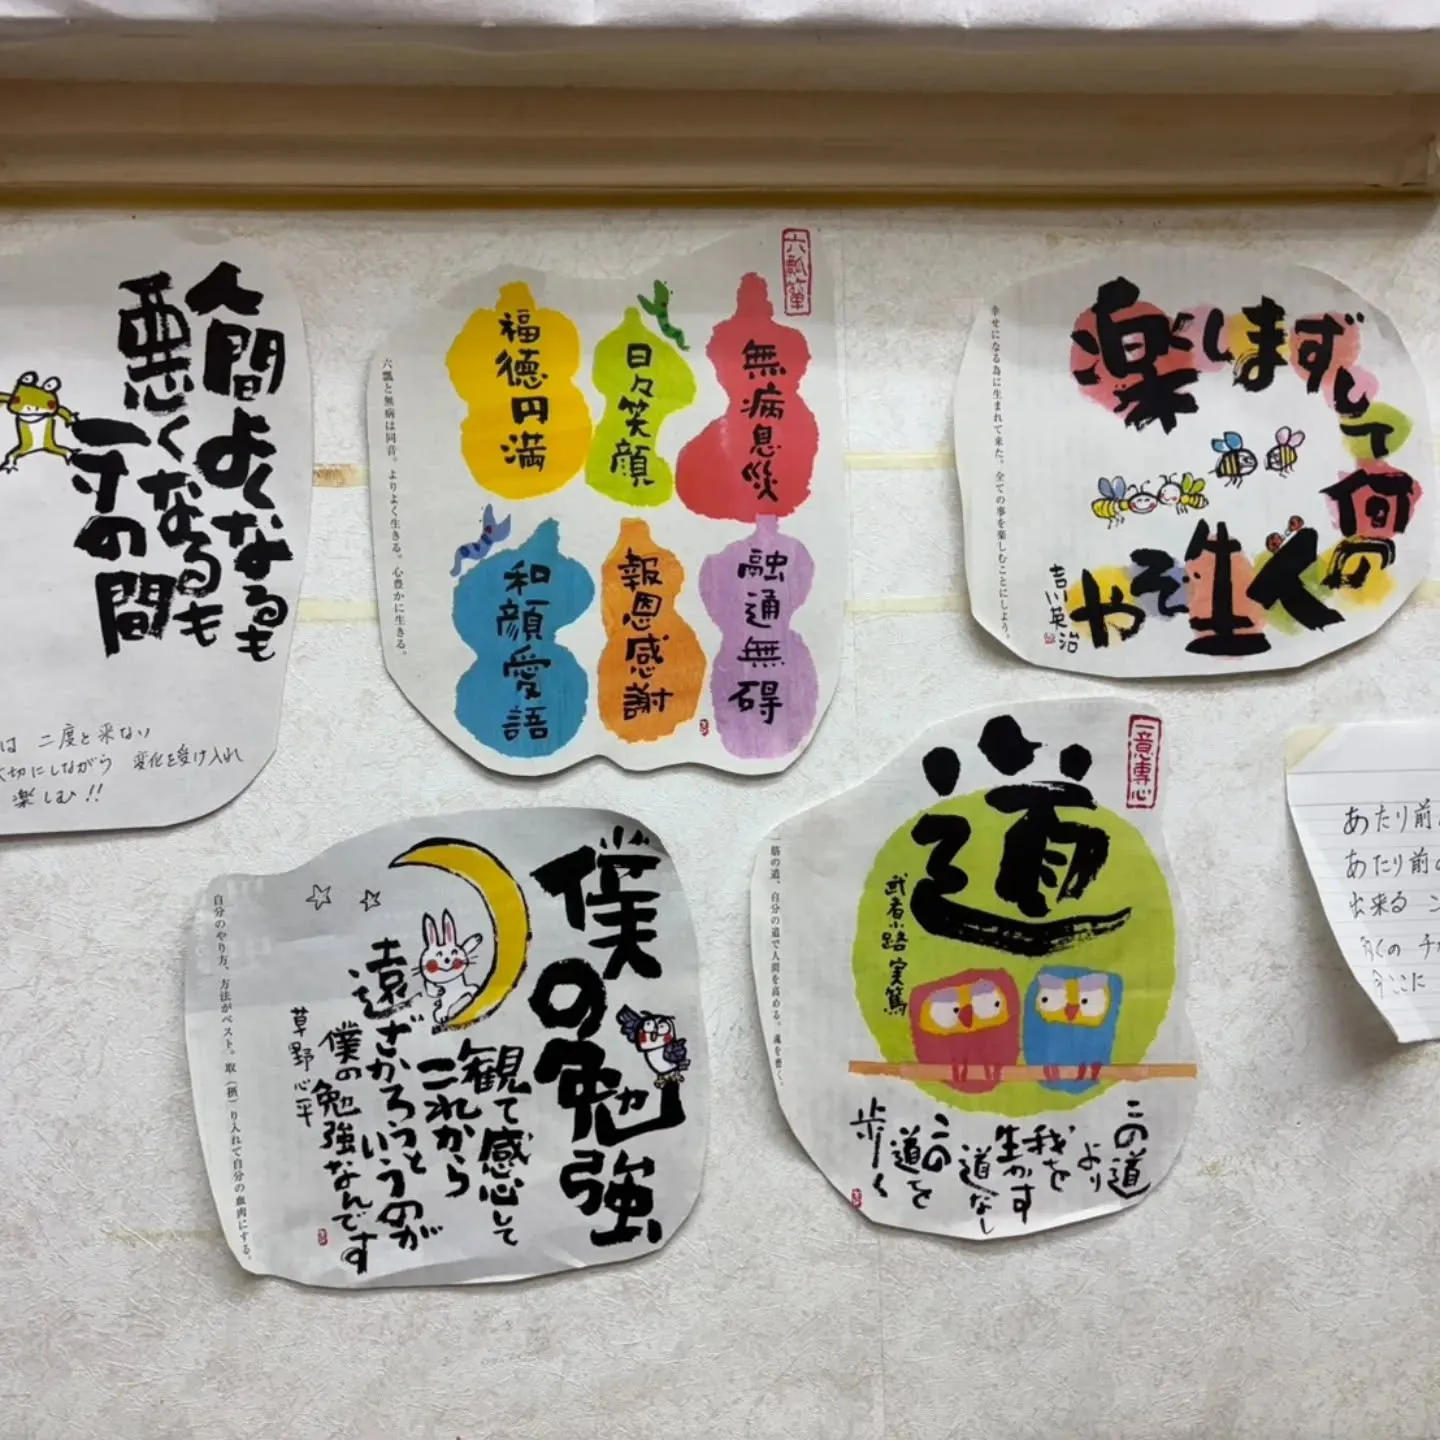 人間よくなるも
悪くなるも
一寸の間
は 二度と来ない
切にしながら 変化を受け入れ
楽しむ!!
六瓢箪
無病息災
日々笑顔
福徳円満
融通無碍
報恩感謝
和顔愛語
六瓢と無病は同音。よりよく生きる。心豊かに生きる。
楽しまずして
何の
人生
ぞや
吉川英治
幸せになる為に生まれて来た。全ての事を楽しむことにしよう。
僕の勉強
観て感心して
これから
遠ざかろうと
いうのが
僕の勉強なんです
草野心平
自分のやり方、方法がベスト。取(摂)り入れて自分の血肉にする。
一意専心
道
武者小路実篤
この道
より
我を
生かす
道なし
この
道を
歩く
一筋の道、自分の道で人間を高める。魂を磨く。
あたり前
あたり前の
出来る
多くの
今ここに